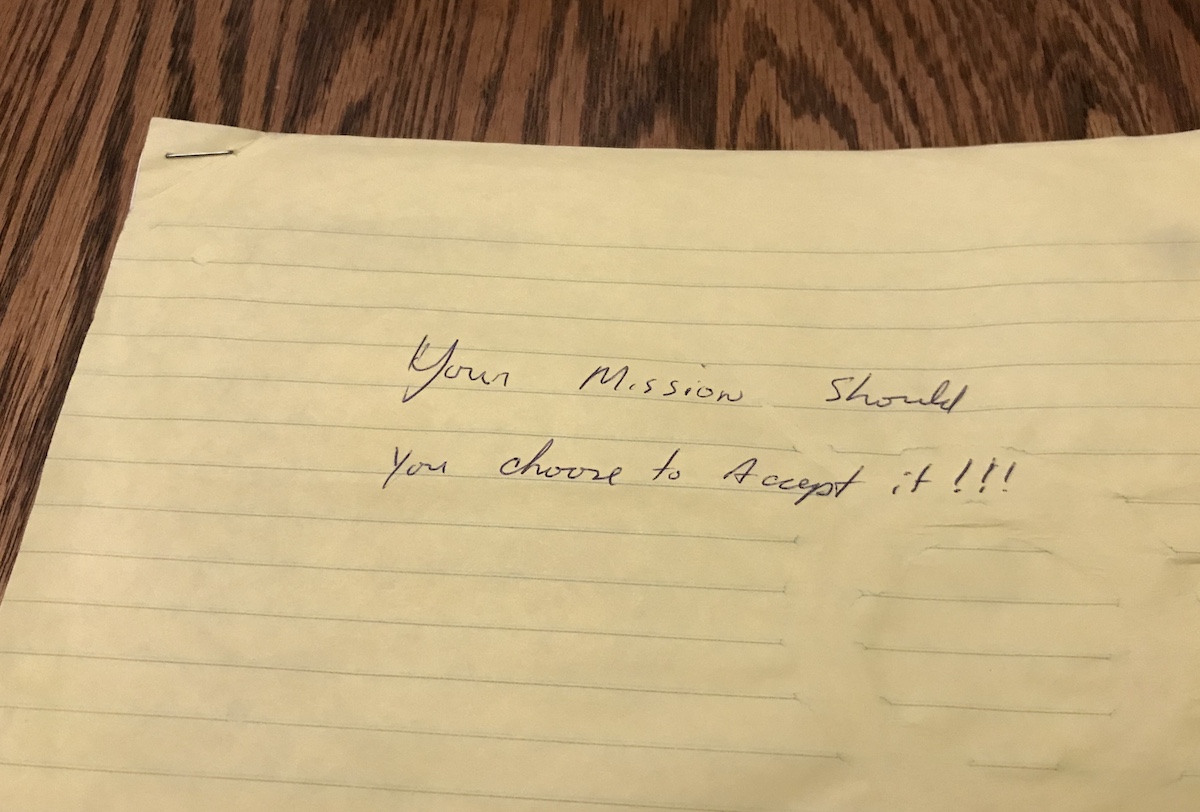 Your Mission Should
you choose to Accept it!!!